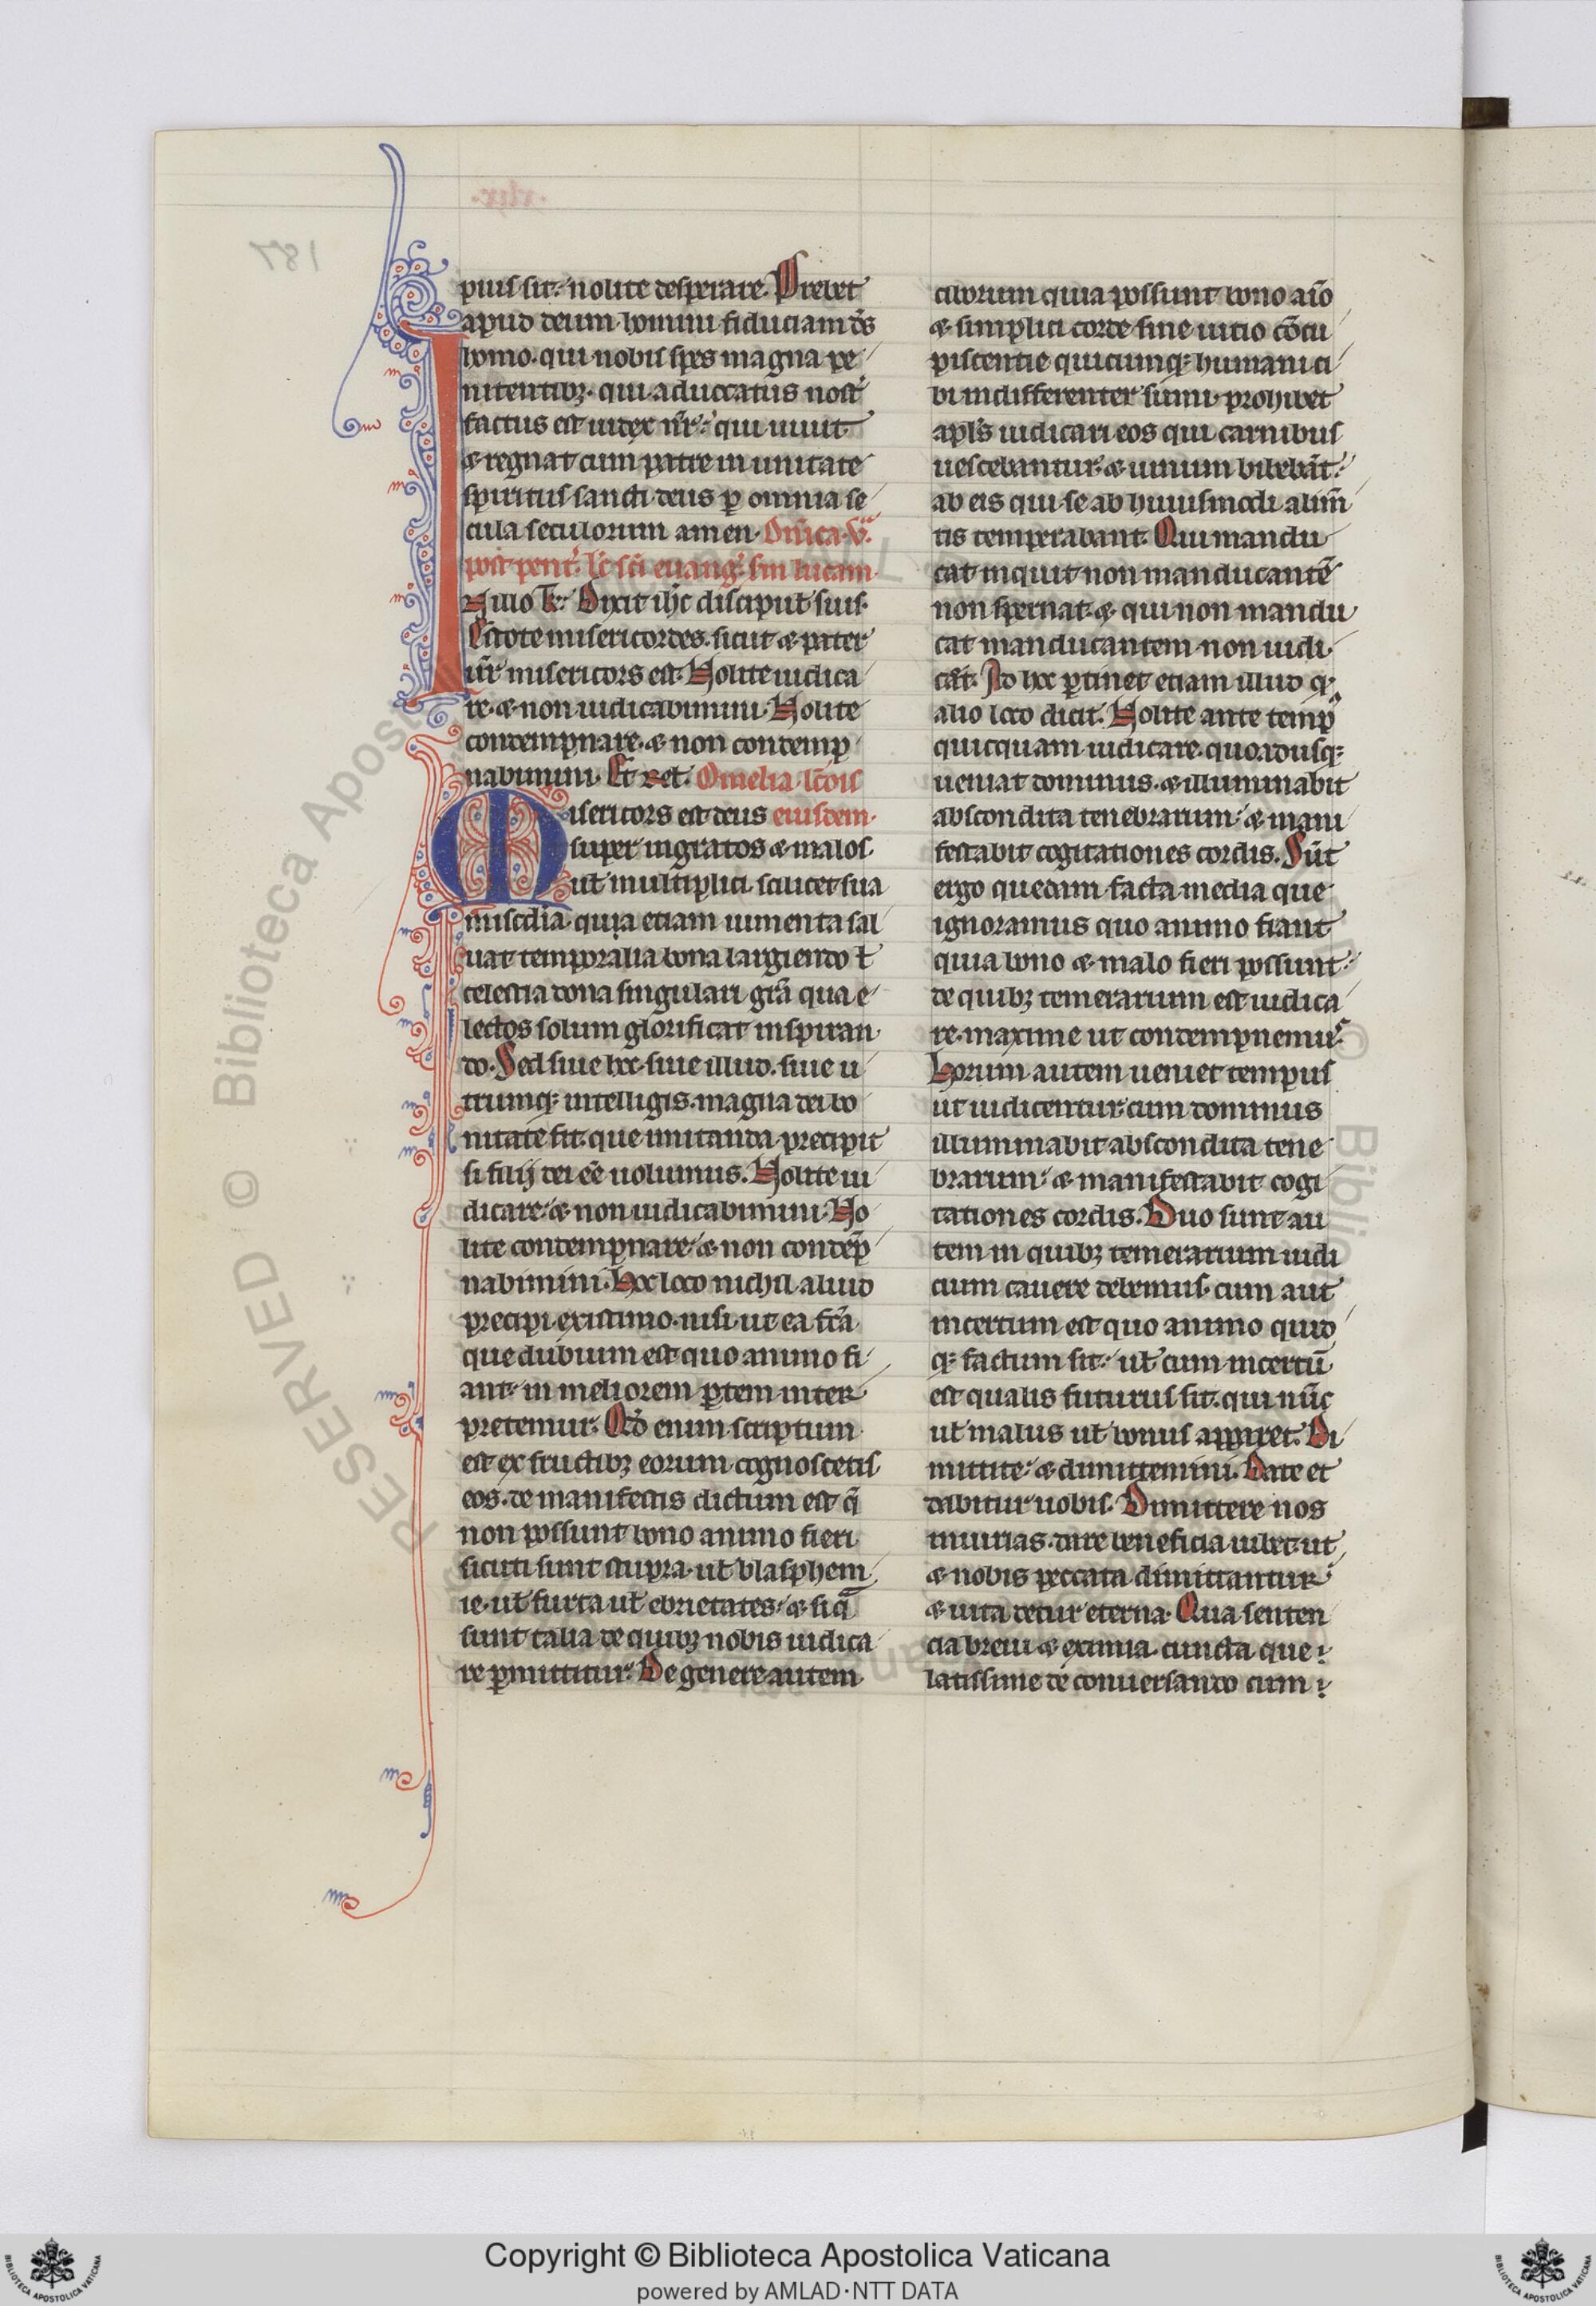 pius sit: nolite desperare. Prebet
apud deum homini fiduciam ds̄
homo. qui nobis spes magna pe
nitentibꝫ. qui aduocatus nost̾
factus est iudex nr̄: qui uiuit
⁊ regnat cum patre in unitate
spiritus sancti deus ꝑ omnia se
cula seculorum amen. Dn̄ica .v.ᵃ
post pent̾. lc̄ sc̄i euang̾. sm̄ lucam.
N illo t̄: Dixit ih̄c discipul̾ suis.
Estote misericordes. sicut ⁊ pater
ur̄ misericors est. Nolite iudica
re. ⁊ non iudicabimini. Nolite
contempnare. ⁊ non contemp
nabimini. Et rel̾. Omelia lc̄ois
Misericors est deus eiusdem.
super ingratos ⁊ malos.
ul̾ multiplici scilicet sua
mis̄cdia. quia etiam iumenta sal
uat temporalia bona largiendo l̾
celestia dona singulari gr̄a qua e
lectos solum glorificat inspiran
do. Sed siue hoc. siue illud. siue u
trumqꝫ intelligis. magna dei bo
nitate fit. que imitanda precipit
si filij dei ee̅ uolumus. Nolite iu
dicare: ⁊ non iudicabimini. No
lite contempnare: ⁊ non contēp̄
nabimini. Hoc loco nichil aliud
precipi existimo. nisi ut ea fc̄a
que dubium est quo animo fi
ant: in meliorem ꝑtem inter
pretemur. Qd̾ enim scriptum
est ex fructibꝫ eorum cognoscetis
eos. de manifestis dictum est q̄
non possunt bono animo fieri
sicuti sunt stupra. ul̾ blasphem
ie. ul̾ furta ul̾ ebrietates: ⁊ siq̄
sunt talia de quibꝫ nobis iudica
re ꝑmittitur. De genere autem
ciborum quia possunt bono aīo
⁊ simplici corde sine uitio cōcu
piscentie quicumqꝫ humani ci
bi indifferenter sumi. prohibet
apl̄s iudicari eos qui carnibus
uescebantur. ⁊ uinum bibebāt:
ab eis qui se ab huiusmodi alim̄
tis temperabant. Qui mandu
cat inquit non manducantē
non spernat. ⁊ qui non mandu
cat manducantem non iudi
cet. Ad hoc ꝑtinet etiam illud qꝫ
alio loco dicit. Nolite ante temp̾
quicquam iudicare. quoadusqꝫ
ueniat dominus. ⁊ illuminabit
abscondita tenebrarum: ⁊ mani
festabit cogitationes cordis. Sūt
ergo quedam facta media que
ignoramus quo animo fiant
quia bono ⁊ malo fieri possunt:
de quibꝫ temerarium est iudica
re. maxime ut contempnemus.
Horum autem ueniet tempus
ut iudicentur. cum dominus
illuminabit abscondita tene
brarum: ⁊ manifestabit cogi
tationes cordis. Duo sunt au
tem in quibꝫ temerarium iudi
cium cauere debemus. cum aut
incertum est quo animo quid
qꝫ factum sit: ul̾ cum incertū
est qualis futurus sit. qui nūc
ul̾ malus ul̾ bonus apparet. Di
mittite: ⁊ dimittemini. Date et
dabitur uobis. Dimittere nos
iniurias. dare beneficia iubet. ut
⁊ nobis peccata dimittantur
⁊ uita detur eterna. Qua senten
cia breui ⁊ eximia. cuncta que
latissime de conuersando cum